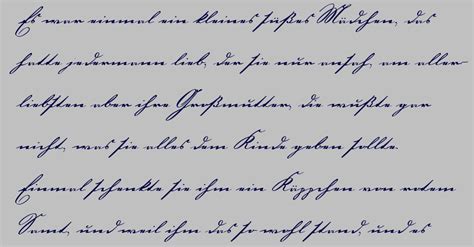 Es war einmal ein kleines süßes Mädchen, das
hatte jedermann lieb, der sie nur ansah, am aller-
liebsten aber ihre Großmutter, die wußte gar
nicht, was sie alles dem Kinde geben sollte.
Einmal schenkte sie ihm ein Käppchen von rotem
Samt, und weil ihm das so wohl stand, und es